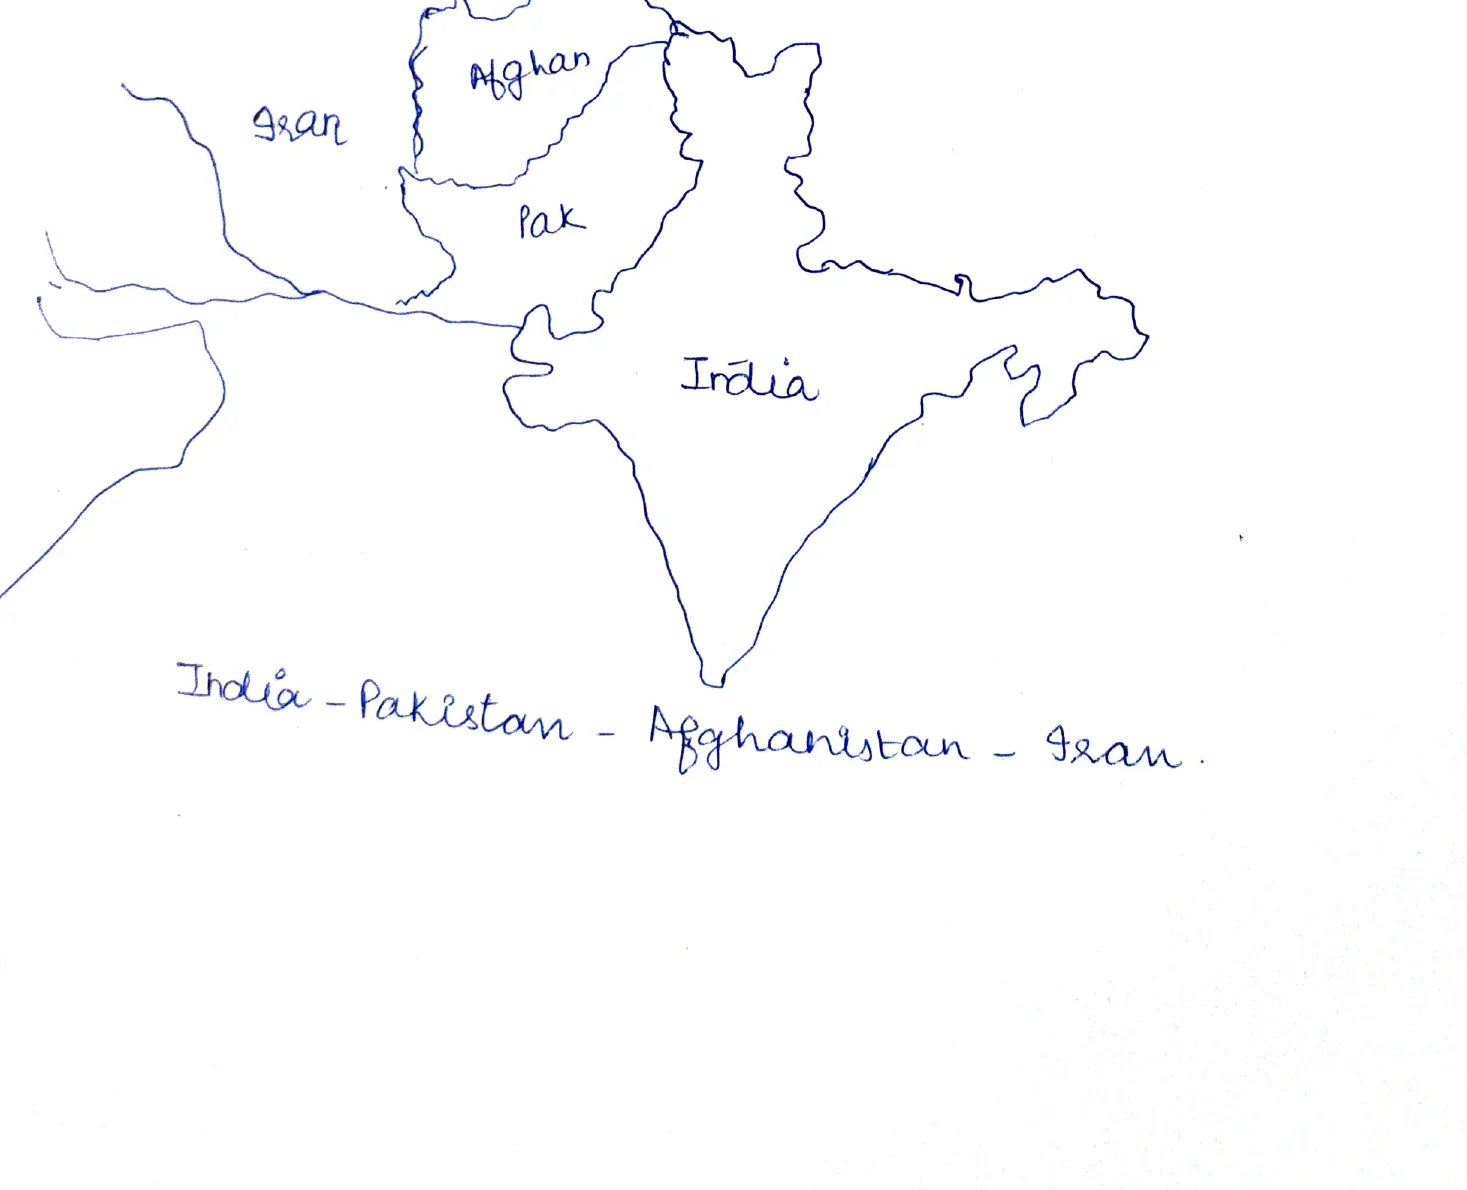 Afghan
Iran
Pak
India
India - Pakistan - Afghanistan - Iran.